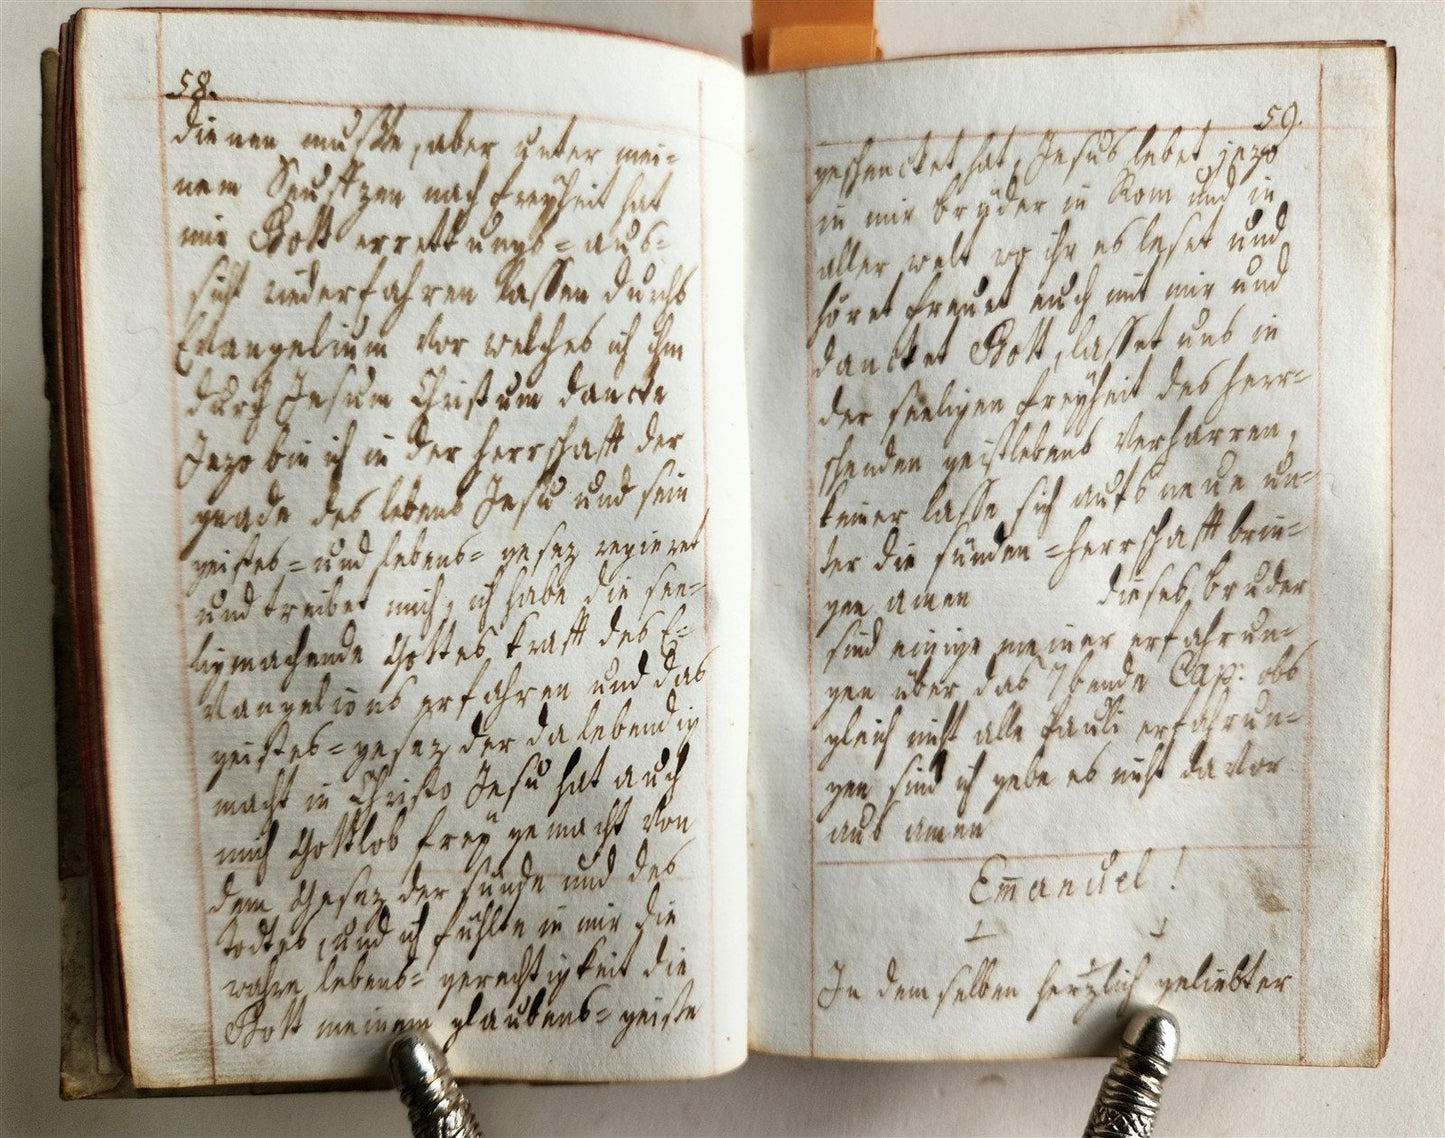 58.
dienen muste, aber unter mei=
nem Seufftzen nach freyheit hat
mir Gott errettungs=aus=
sicht wiederfahren lassen durchs
Evangelium vor welches ich ihm
durch Jesum Christum dancke
Jezo bin ich in der herrschafft der
gnade des lebens Jesu und sein
geistes= und lebens= gesez regieret
und treibet mich, ich habe die see=
ligmachende Gottes krafft des E=
vangelions erfahren und das
geistes=gesez der da lebendig
macht in Christo Jesu hat auch
mich Gottlob frey gemacht von
dem Gesez der sünde und des
todtes, und ich fühle in mir die
wahre lebens= gerechtigkeit die
Gott meinem glaubens= geiste
59.
geschencket hat, Jesus lebet jezo
in mir brüder in Rom und in
aller welt wo ihr es leset und
höret freuet euch mit mir und
dancket Gott, lasset uns in
der seeligen freyheit des herr=
schenden geistlebens verharren,
keiner lasse sich aufs neue un=
ter die sünden=herrschafft brin=
gen amen dieses bruder
sind einige meiner erfahrun=
gen über das 7bende Cap: obs
gleich nicht alle Pauli erfahrun=
gen sind ich gebe es nicht davor
aus amen
Emanuel !
In demselben herzlich geliebter